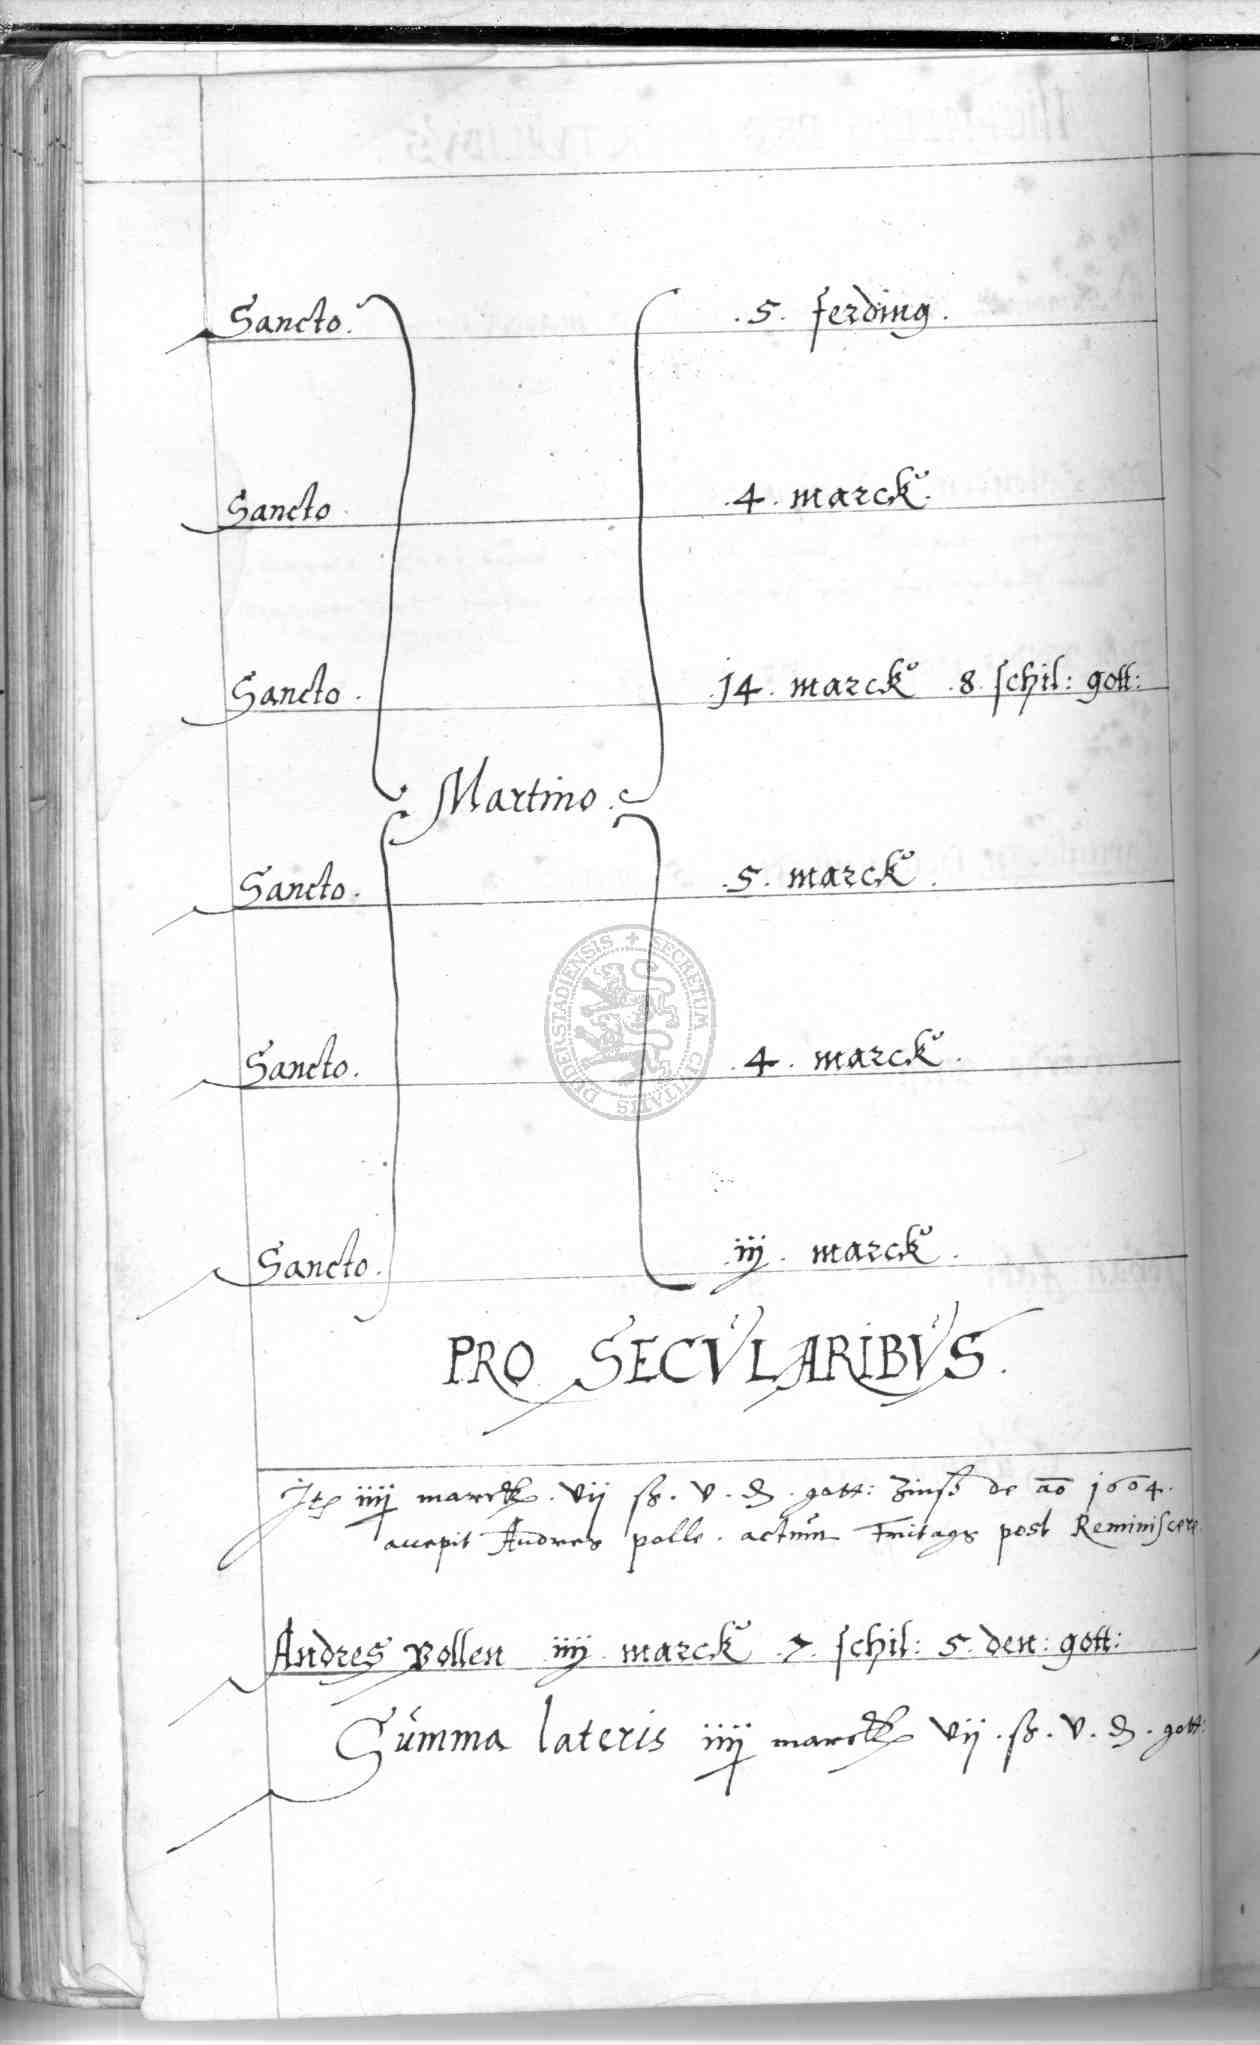 Sancto. .5. ferding.
Sancto .4. marck.
Sancto. .14. marck .8. schil: gott:
Martino.
Sancto. .5. marck.
Sancto. .4. marck.
Sancto. .iij. marck.
PRO SECVLARIBVS.
iiij marck. vij ß. v. ₰. gott: Zinß de ao 1604.
accepit Andres polle. actum Freitags post Reminiscere
Andres Pollen iiij. marck .7. schil: 5. den: gott:
Summa lateris iiij marck vij. ß. v. ₰. gott:
SECRETUM CIVITATIS DUDERSTADIENSIS